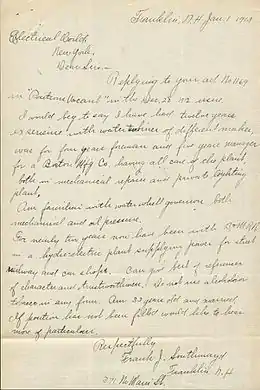 Franklin, N.H. Jan. 1 19
Electrical World
New York,
Dear Sirs:-
Replying to your ad No 1169
in "Positions Vacant" in the Dec. 28 issue
I would beg to say I have had twelve years
experience with water turbines of different makes
was for four years foreman and five years manager
for a Boston Mfg Co. having all care of the plant,
both in mechanical repairs and private lighting
plant,
Am familiar with water wheel governors both
mechanical and oil pressure.
For nearly two years now have been with B & M R.R.
in a hydroelectric plant supplying power for street
railway and car shops. Can give best of references
of character and trustworthiness. Do not use alcohol or
tobacco in any form. Am 33 years old and married,
If position has not been filled would like to hear
more of particulars.
Respectfully
Frank J. Southmayd
Franklin, N.H.
No Main St.